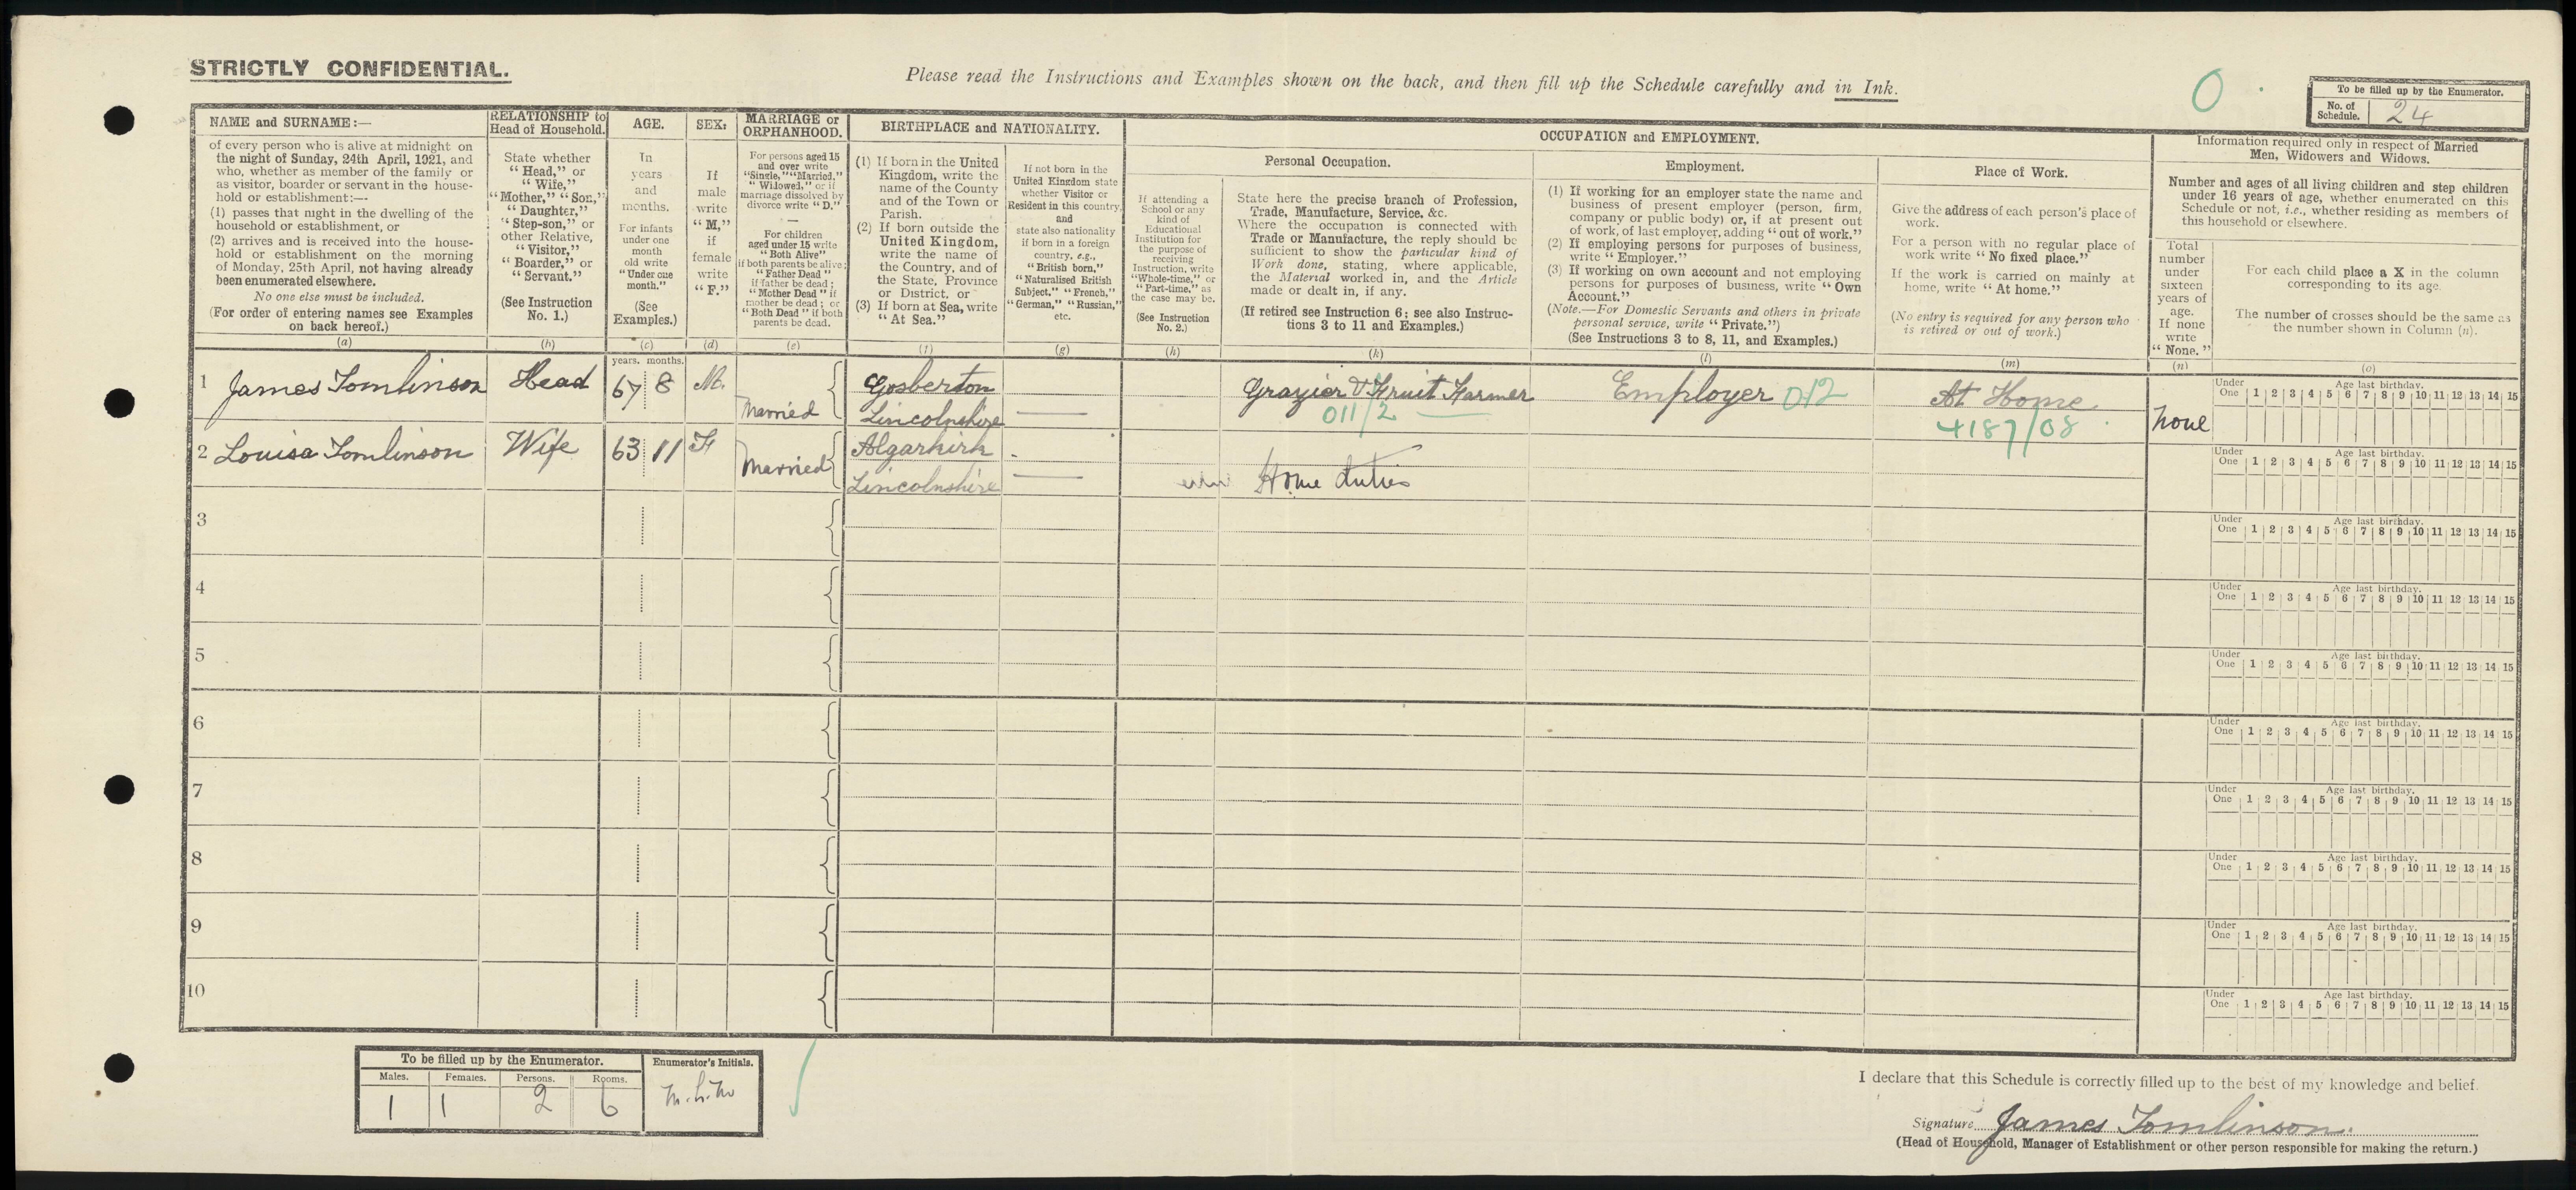 STRICTLY CONFIDENTIAL.
Please read the Instructions and Examples shown on the back, and then fill up the Schedule carefully and in Ink.
0
To be filled up by the Enumerator.
No. of Schedule. 24
NAME and SURNAME:—
of every person who is alive at midnight on
the night of Sunday, 24th April, 1921, and
who, whether as member of the family or
as visitor, boarder or servant in the house-
hold or establishment:—
(1) passes that night in the dwelling of the
household or establishment, or
(2) arrives and is received into the house-
hold or establishment on the morning
of Monday, 25th April, not having already
been enumerated elsewhere.
No one else must be included.
(For order of entering names see Examples
on back hereof.)
(a)
RELATIONSHIP to
Head of Household.
State whether
"Head," or
"Wife,"
"Mother," "Son,"
"Daughter,"
"Step-son," or
other Relative,
"Visitor,"
"Boarder," or
"Servant."
(See Instruction
No. 1.)
(b)
AGE.
In
years
and
months.
For infants
under one
month
old write
"Under one
month."
(See
Examples.)
(c)
SEX:
If
male
write
"M,"
if
female
write
"F."
(d)
MARRIAGE or
ORPHANHOOD.
For persons aged 15
and over write
"Single," "Married,"
"Widowed," or if
marriage dissolved by
divorce write "D."
—
For children
aged under 15 write
"Both Alive"
if both parents be alive;
"Father Dead"
if father be dead;
"Mother Dead" if
mother be dead; or
"Both Dead" if both
parents be dead.
(e)
BIRTHPLACE and NATIONALITY.
(1) If born in the United
Kingdom, write the
name of the County
and of the Town or
Parish.
(2) If born outside the
United Kingdom,
write the name of
the Country, and of
the State, Province
or District, or
(3) If born at Sea, write
"At Sea."
(f)
If not born in the
United Kingdom state
whether Visitor or
Resident in this country,
and
state also nationality
if born in a foreign
country, e.g.,
"British born,"
"Naturalised British
Subject," "French,"
"German," "Russian,"
etc.
(g)
OCCUPATION and EMPLOYMENT.
If attending a
School or any
kind of
Educational
Institution for
the purpose of
receiving
Instruction, write
"Whole-time," or
"Part-time," as
the case may be.
(See Instruction
No. 2.)
(h)
Personal Occupation.
State here the precise branch of Profession,
Trade, Manufacture, Service, &c.
Where the occupation is connected with
Trade or Manufacture, the reply should be
sufficient to show the particular kind of
Work done, stating, where applicable,
the Material worked in, and the Article
made or dealt in, if any.
(If retired see Instruction 6; see also Instruc-
tions 3 to 11 and Examples.)
(k)
Employment.
(1) If working for an employer state the name and
business of present employer (person, firm,
company or public body) or, if at present out
of work, of last employer, adding "out of work."
(2) If employing persons for purposes of business,
write "Employer."
(3) If working on own account and not employing
persons for purposes of business, write "Own
Account."
(Note.—For Domestic Servants and others in private
personal service, write "Private.")
(See Instructions 3 to 8, 11, and Examples.)
(l)
Place of Work.
Give the address of each person's place of
work.
For a person with no regular place of
work write "No fixed place."
If the work is carried on mainly at
home, write "At home."
(No entry is required for any person who
is retired or out of work.)
(m)
Information required only in respect of Married
Men, Widowers and Widows.
Number and ages of all living children and step children
under 16 years of age, whether enumerated on this
Schedule or not, i.e., whether residing as members of
this household or elsewhere.
Total
number
under
sixteen
years of
age.
If none
write
"None."
(n)
For each child place a X in the column
corresponding to its age.
The number of crosses should be the same as
the number shown in Column (n).
(o)
years. months.
1 James Tomlinson Head 67 8 M. Married Gosberton Grazier & Fruit Farmer Employer 012 At Home
Lincolnshire 011/2 4187/08 None
Under One Age last birthday. 1 2 3 4 5 6 7 8 9 10 11 12 13 14 15
2 Louisa Tomlinson Wife 63 11 F Married Algarkirk
Lincolnshire Home Duties
Under One Age last birthday. 1 2 3 4 5 6 7 8 9 10 11 12 13 14 15
3
Under One Age last birthday. 1 2 3 4 5 6 7 8 9 10 11 12 13 14 15
4
Under One Age last birthday. 1 2 3 4 5 6 7 8 9 10 11 12 13 14 15
5
Under One Age last birthday. 1 2 3 4 5 6 7 8 9 10 11 12 13 14 15
6
Under One Age last birthday. 1 2 3 4 5 6 7 8 9 10 11 12 13 14 15
7
Under One Age last birthday. 1 2 3 4 5 6 7 8 9 10 11 12 13 14 15
8
Under One Age last birthday. 1 2 3 4 5 6 7 8 9 10 11 12 13 14 15
9
Under One Age last birthday. 1 2 3 4 5 6 7 8 9 10 11 12 13 14 15
10
Under One Age last birthday. 1 2 3 4 5 6 7 8 9 10 11 12 13 14 15
To be filled up by the Enumerator.
Males. Females. Persons. Rooms.
1 1 2 6
Enumerator's Initials.
I declare that this Schedule is correctly filled up to the best of my knowledge and belief.
Signature James Tomlinson.
(Head of Household, Manager of Establishment or other person responsible for making the return.)